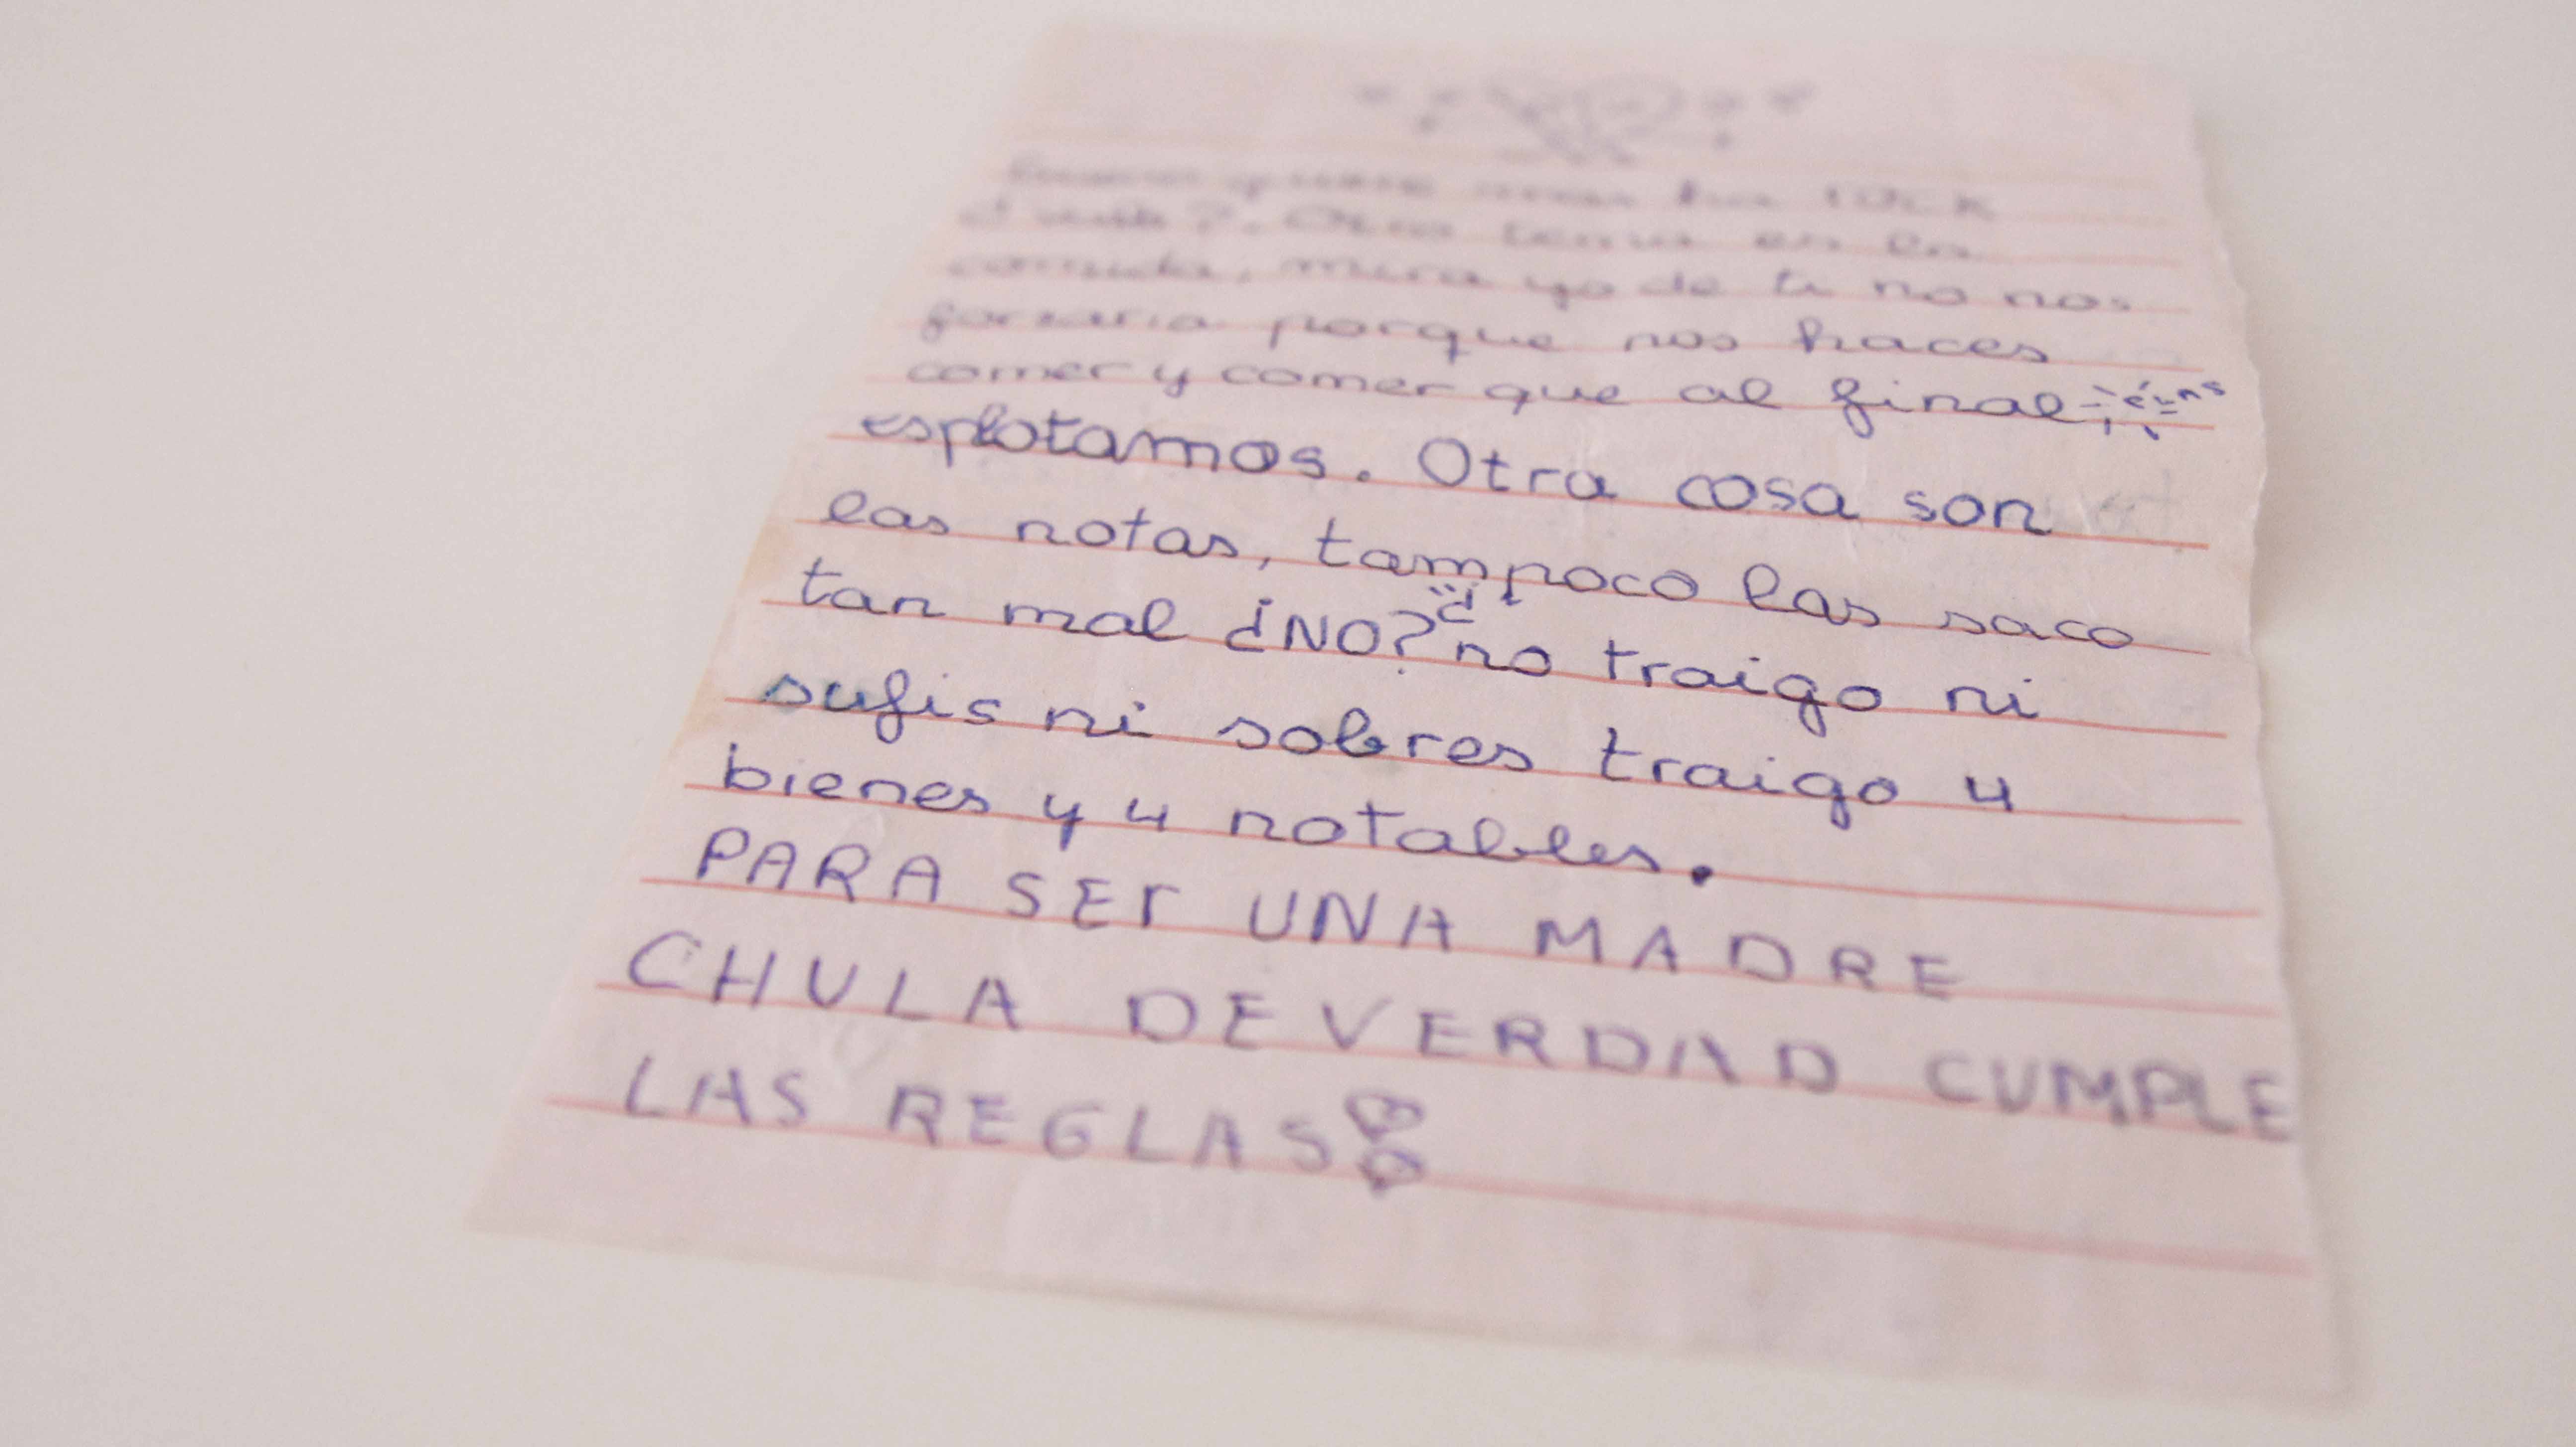 rock
? . Otro tema es la
comida, mira yo de ti no nos
forzaria porque nos haces
comer y comer que al final
esplotamos. Otra cosa son
las notas, tampoco las saco
tan mal ¿NO? no traigo ni
sufis ni sobres traigo 4
bienes y 4 notables.
PARA SEr UNA MADRE
CHULA DE VERDAD CUMPLE
LAS REGLAS